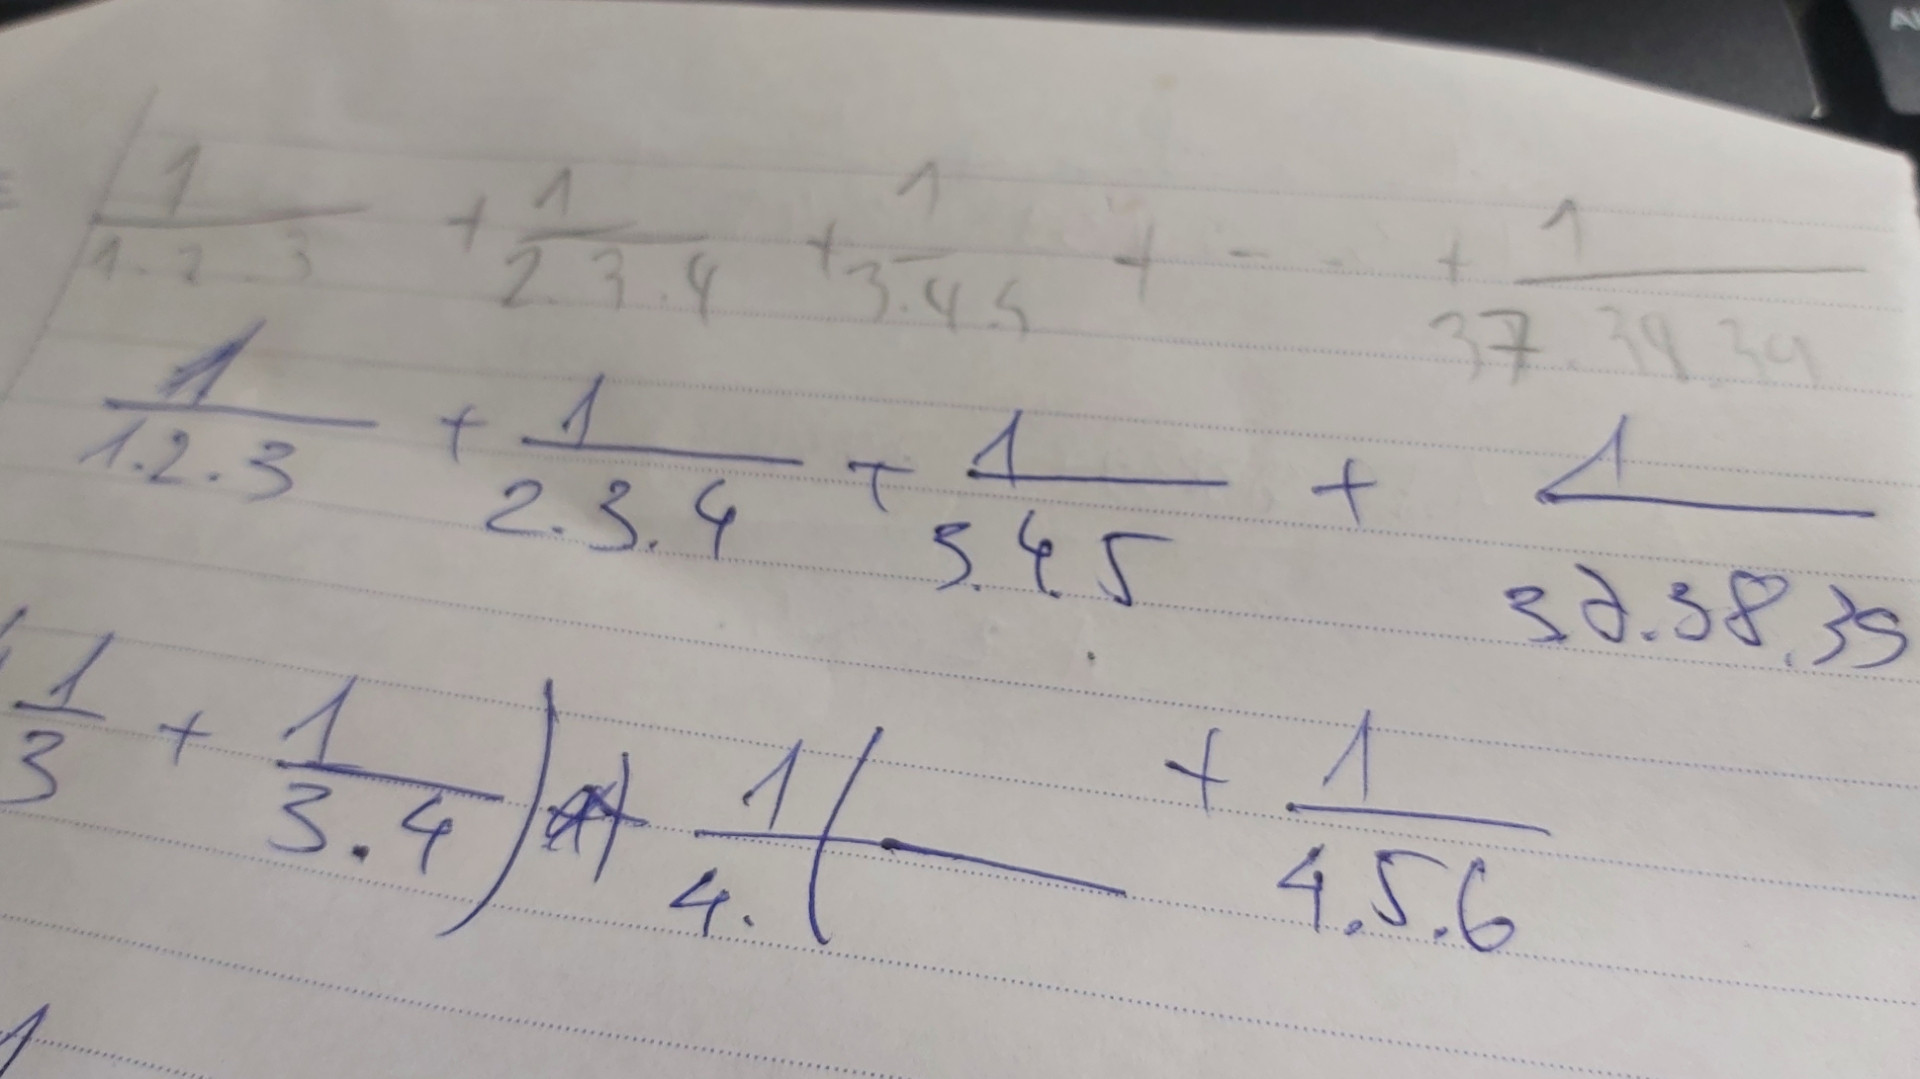 = 1/1.2.3 + 1/2.3.4 + 1/3.4.5 + - - + 1/37.38.39
1/1.2.3 + 1/2.3.4 + 1/3.4.5 + 1/37.38.39
1/3 + 1/3.4) 1/4. ( + 1/4.5.6
1